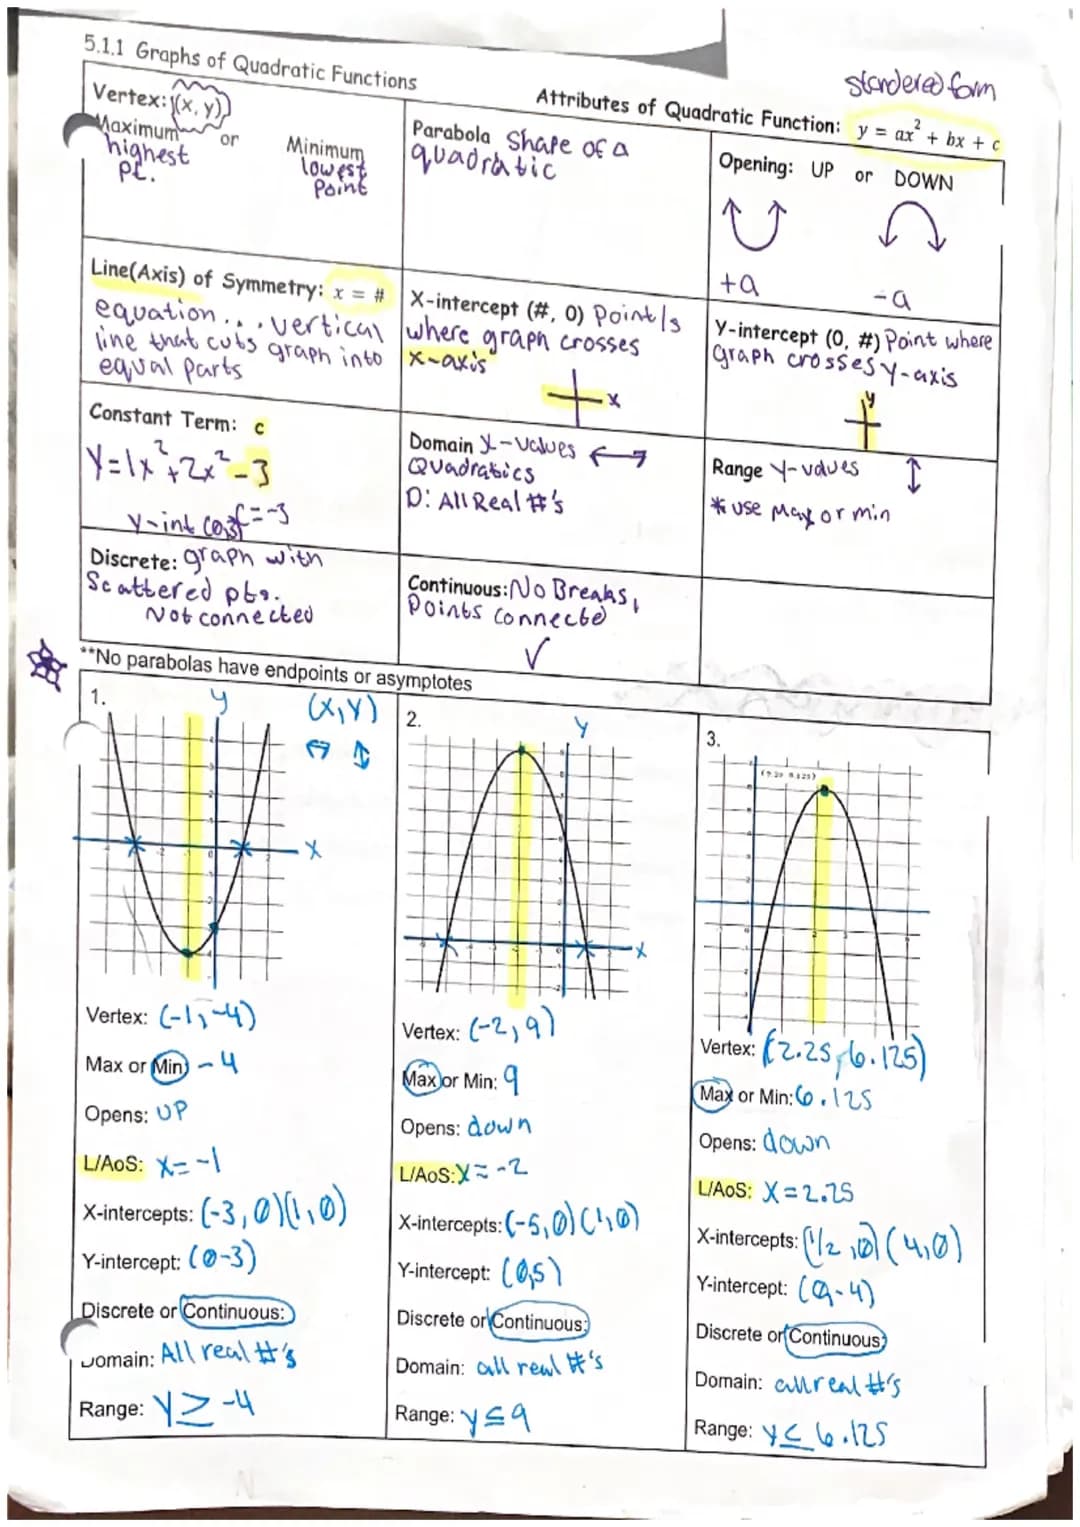 5.1.1 Graphs of Quadratic Functions
standered form
Attributes of Quadratic Function: y = ax² + bx + c
Vertex: (x, y)
Maximum or Minimum
highest pt.
lowest Point
Parabola Shape of a
quadratic
Opening: UP or DOWN
+a
-a
Line(Axis) of Symmetry: x = #
equation... vertical
line that cuts graph into
equal parts
X-intercept (#, 0) Point/s
where graph crosses
x-axis
x
Y-intercept (0, #) Point where
graph crosses y-axis
y
Constant Term: c
y=1x²+2x²-3
y-int -3
Domain x-values
Quadratics
D: All Real #'s
Range y-values
* use Max or min
Discrete: graph with
Scattered pts.
Not connected
Continuous: No Breaks,
Points connected
**No parabolas have endpoints or asymptotes
1.
y
(x, y)
x
Vertex: (-1,-4)
Max or Min: -4
Opens: UP
L/AoS: x=-1
X-intercepts: (-3,0)(1,0)
Y-intercept: (0-3)
Discrete or Continuous:
Domain: All real #'s
Range: y≥-4
2.
y
x
Vertex: (-2,9)
Max or Min: 9
Opens: down
L/AoS: x=-2
X-intercepts: (-5,0)(1,0)
Y-intercept: (0,5)
Discrete or Continuous:
Domain: all real #'s
Range: y≤9
3.
Vertex: (2.25,6.125)
Max or Min: 6.125
Opens: down
L/AoS: x=2.25
X-intercepts: (1/2,0)(4,0)
Y-intercept: (0,-4)
Discrete or Continuous:
Domain: all real #'s
Range: y≤6.125